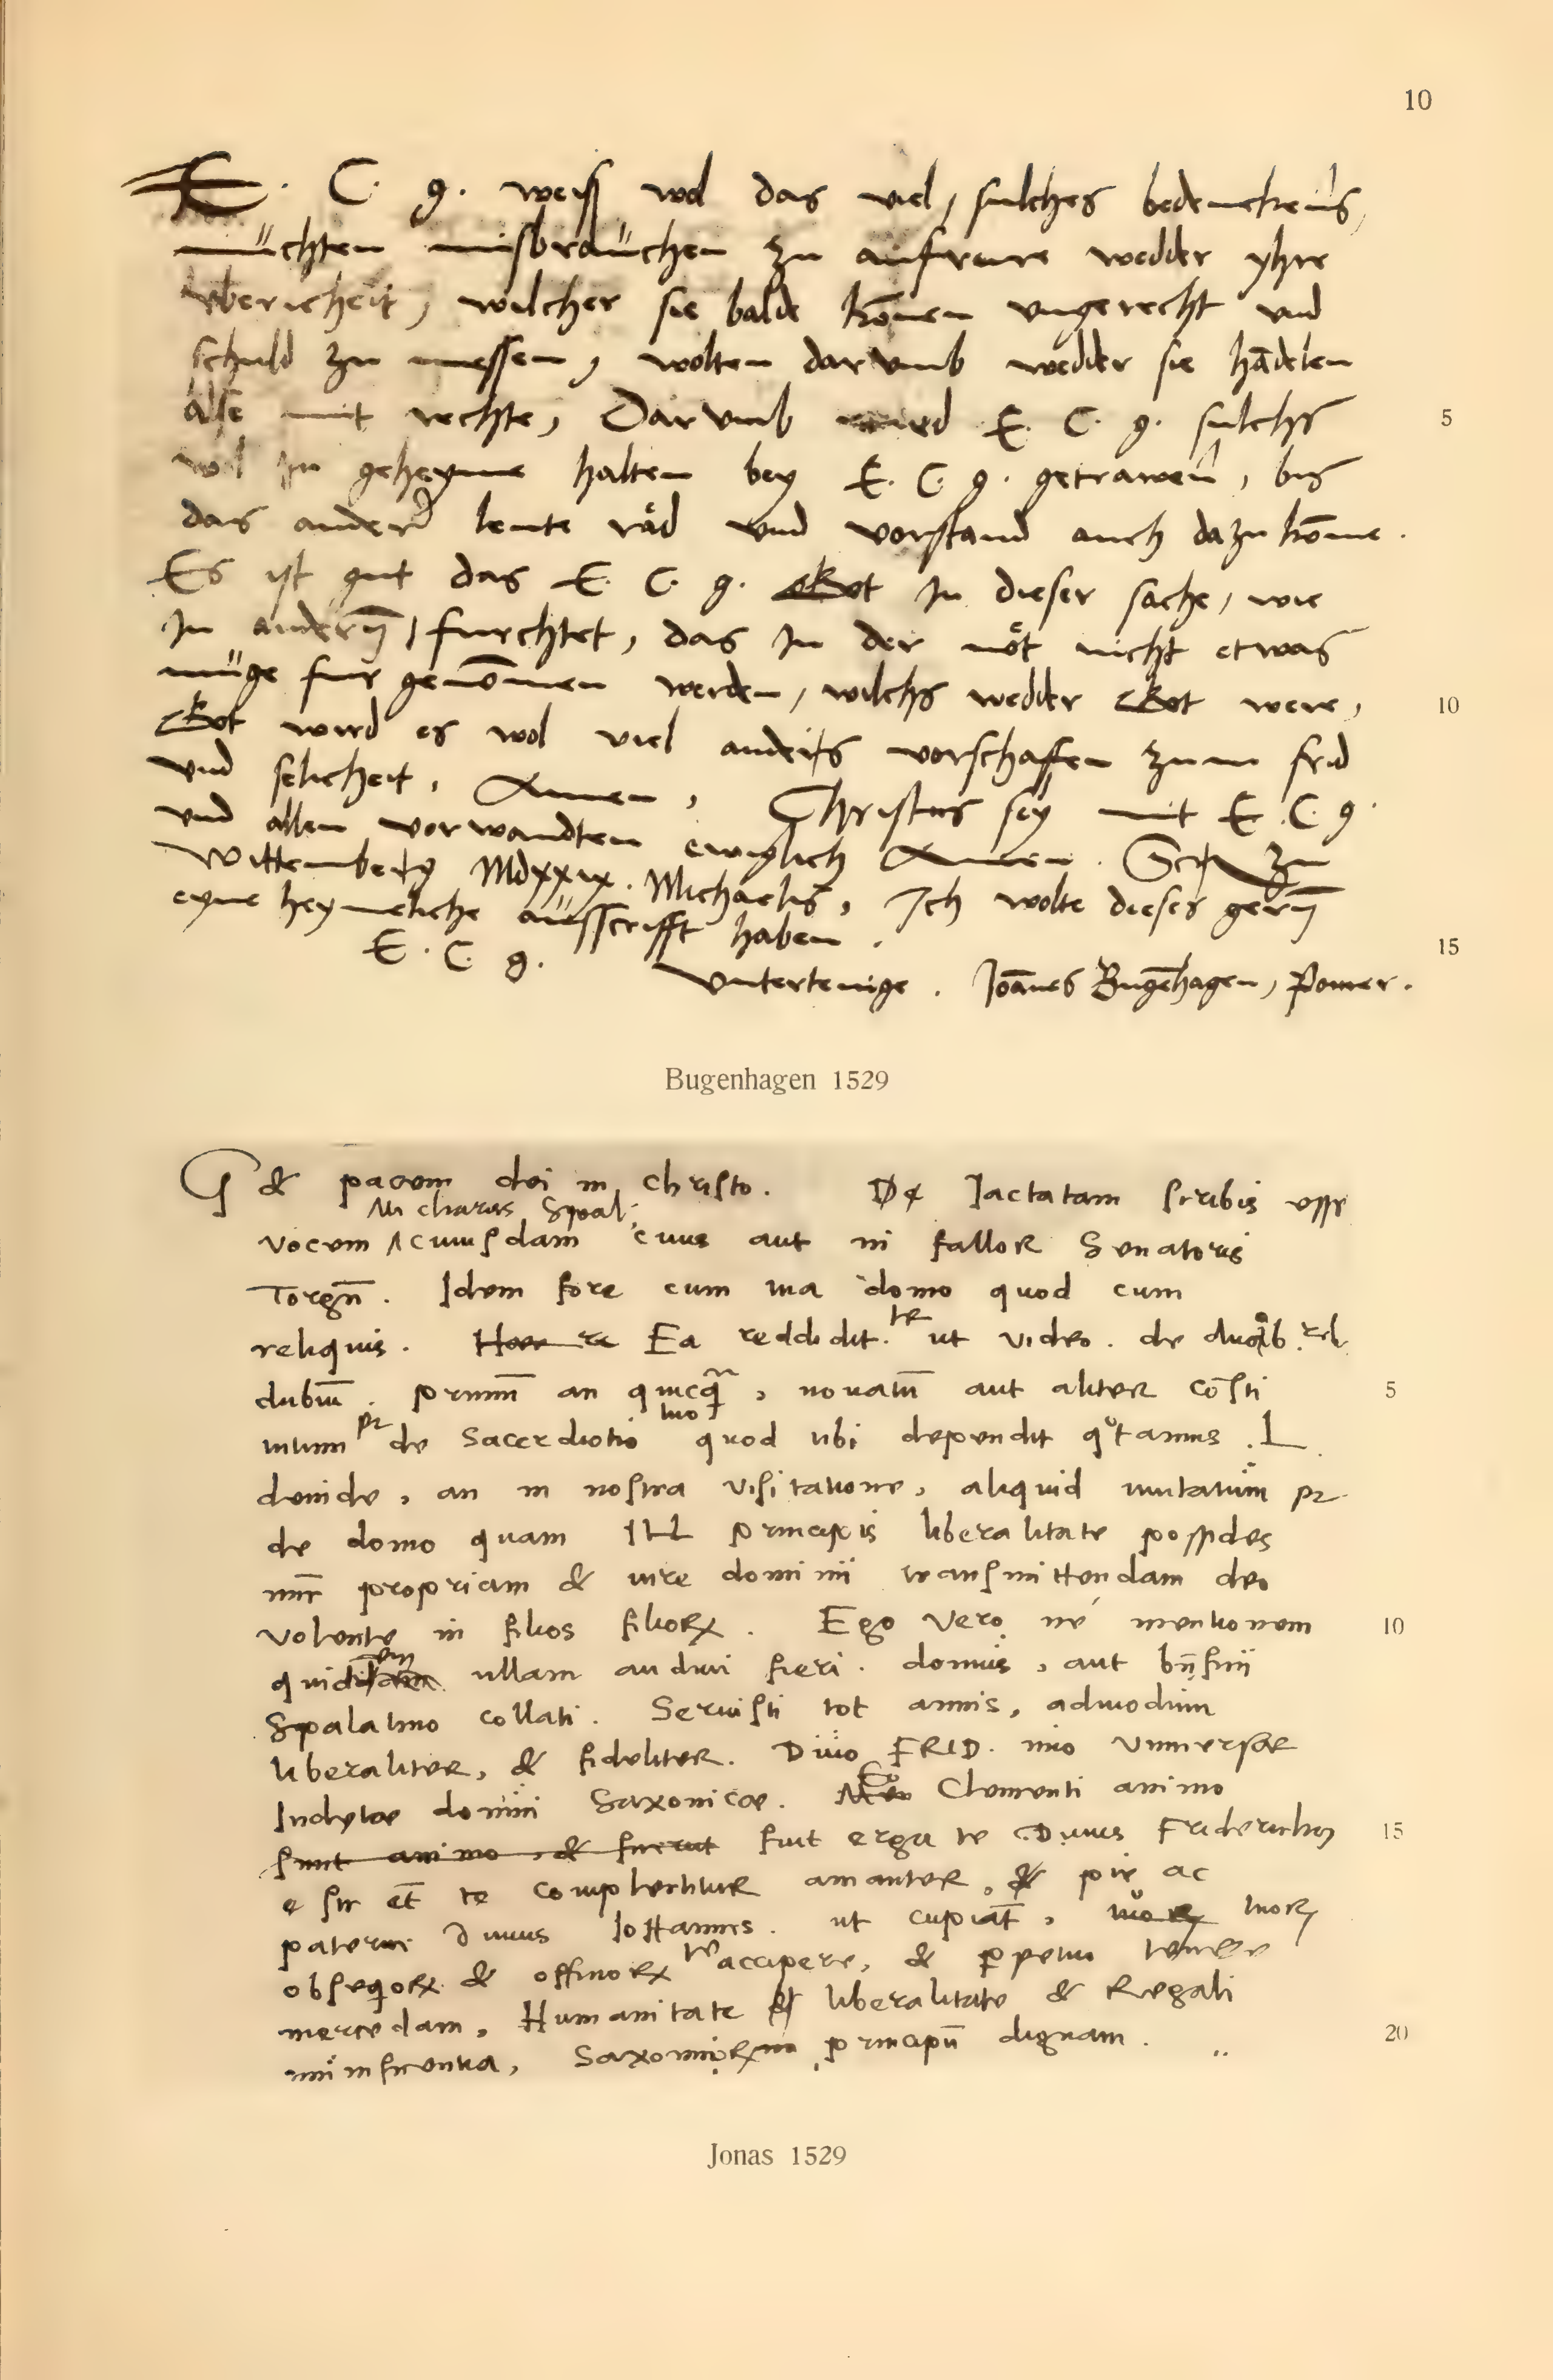 10
E. C. g. weiss wol das viel, sulches bedenckens,
müchten misbraüchen zu aufrure wedder yhre
vbericheit, wilcher sie balde kōnen vngerecht vnd
schuld zu messen, wolten darvmb wedder sie hādelen
alse mit rechte, Darvmb wird E. C. g. sulchs
5
wol in geheyme halten bey E. C. g. getrawen, bis
das ander leute råd vnd vorstand auch dazu kōme.
Es ist gut das E. C. g. Got in dieser sache, wie
in andern, furchtet, das in der nöt nicht etwas
müge fur genōmen werden, wilchs wedder Got were,
10
Got wird es wol viel anders vorschaffen zum frid
vnd selicheit, Amen, Christus sey mit E. C. g.
vnd allen vorwandten ewiglich Amen. Scr. zu
Wittemberg Mdxxix. Michaelis, Ich wolte dieses gern
eyne heymeliche aüsscrifft haben.
15
E. C. g.
Vntertenige. Joānes Bugēhagen, Pomer.
Bugenhagen 1529
G & pacem dei in christo. Iactatam scribis esse
Mi charis Spal:
vocem cuiusdam cuius aut ni fallor Senatoris
Torgn̄. Idem fore cum tua domo quod cum
reliquis. Ea reddidit te ut video. de duab. reb
dubiū. primū an quicq̄, nouatū aut aliter cōsti
5
tutum de Sacerdotio tuo quod tibi dependit
deinde, an in nostra visitatione, aliquid mutatum
de domo quam Ill principis liberalitate possides
propriam & iure dominii transmittendam deo
volente in filios filiorꝝ. Ego vero ne mentionem
10
quidem ullam audiui fieri. domus, aut bn̄ficii
Spalatino collati. Seruisti tot annis, admodum
liberaliter, & fideliter. Diuo FRID. imo vniuersae
Inclytae domui Saxonicae. Eo Clementi animo
sunt animo, & fuerut fuit erga te Diuus Fridericus
15
e sic et te complectitur amanter, & pie ac
paterne Diuus Iohannes. ut cupiat, tuorꝝ
obsequiorꝝ & officiorꝝ te accipere, & perpetuo tenere
mercedam, Humanitate & liberalitate & Regali
munificentia, Saxonicorꝝ principū dignam.
20
Jonas 1529